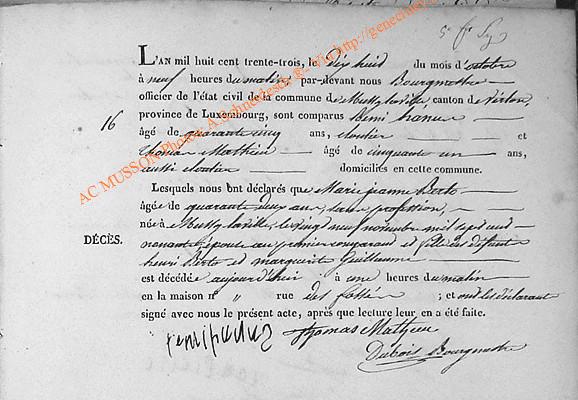 L'AN mil huit cent trente-trois, le dix huit du mois d'octobre
à neuf heures du matin par-devant nous Bourgmestre
officier de l'état civil de la commune de Mussy-la-ville, canton de Virton,
province de Luxembourg, sont comparus
16
âgé de quarante cinq ans, cloutier et
thomas Mathieu âgé de cinquante un ans,
aussi cloutier domiciliés en cette commune.
Lesquels nous ont déclarés que Marie jeanne
âgée de quarante deux ans, sans profession,
née à Mussy-la-ville, le vingt neuf novembre mil sept cent
DÉCÈS.
nonante, épouse au premier comparant et fille des défunts
henri et marguerite Guillaume
est décédée aujourd'hui à une heures du matin
en la maison n° " rue des fossés ; et ont les déclarants
signé avec nous le présent acte, après que lecture leur en a été faite.
Thomas Mathieu
Dubois Bourgmestre
AC MUSSON Photos A.S. http://